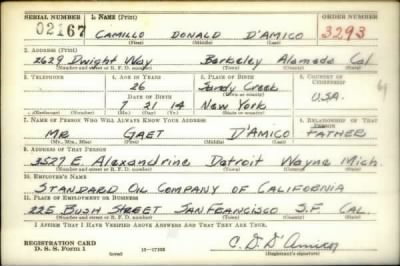 SERIAL NUMBER 1. NAME (Print) ORDER NUMBER
02167 CAMILLO DONALD D'AMICO 3293
(First) (Middle) (Last)
2. ADDRESS (Print)
2629 Dwight Way Berkeley Alameda Cal
(Number and street or R. F. D. number) (Town) (County) (State)
3. TELEPHONE 4. AGE IN YEARS 5. PLACE OF BIRTH 6. COUNTRY OF CITIZENSHIP
26 Sandy Creek
(Town or county)
DATE OF BIRTH U.S.A.
7 21 14 New York
(Exchange) (Number) (Mo.) (Day) (Yr.) (State or country)
7. NAME OF PERSON WHO WILL ALWAYS KNOW YOUR ADDRESS 8. RELATIONSHIP OF THAT PERSON
MR GAET D'AMICO FATHER
(Mr., Mrs., Miss) (First) (Middle) (Last)
9. ADDRESS OF THAT PERSON
3527 E. Alexandrine Detroit Wayne Mich.
(Number and street or R. F. D. number) (Town) (County) (State)
10. EMPLOYER'S NAME
STANDARD OIL COMPANY OF CALIFORNIA
11. PLACE OF EMPLOYMENT OR BUSINESS
225 BUSH STREET SAN FRANCISCO S.F. CAL.
(Number and street or R. F. D. number) (Town) (County) (State)
I AFFIRM THAT I HAVE VERIFIED ABOVE ANSWERS AND THAT THEY ARE TRUE.
REGISTRATION CARD
D. S. S. Form 1 (over) C. D. D'Amico
(Registrant's signature)